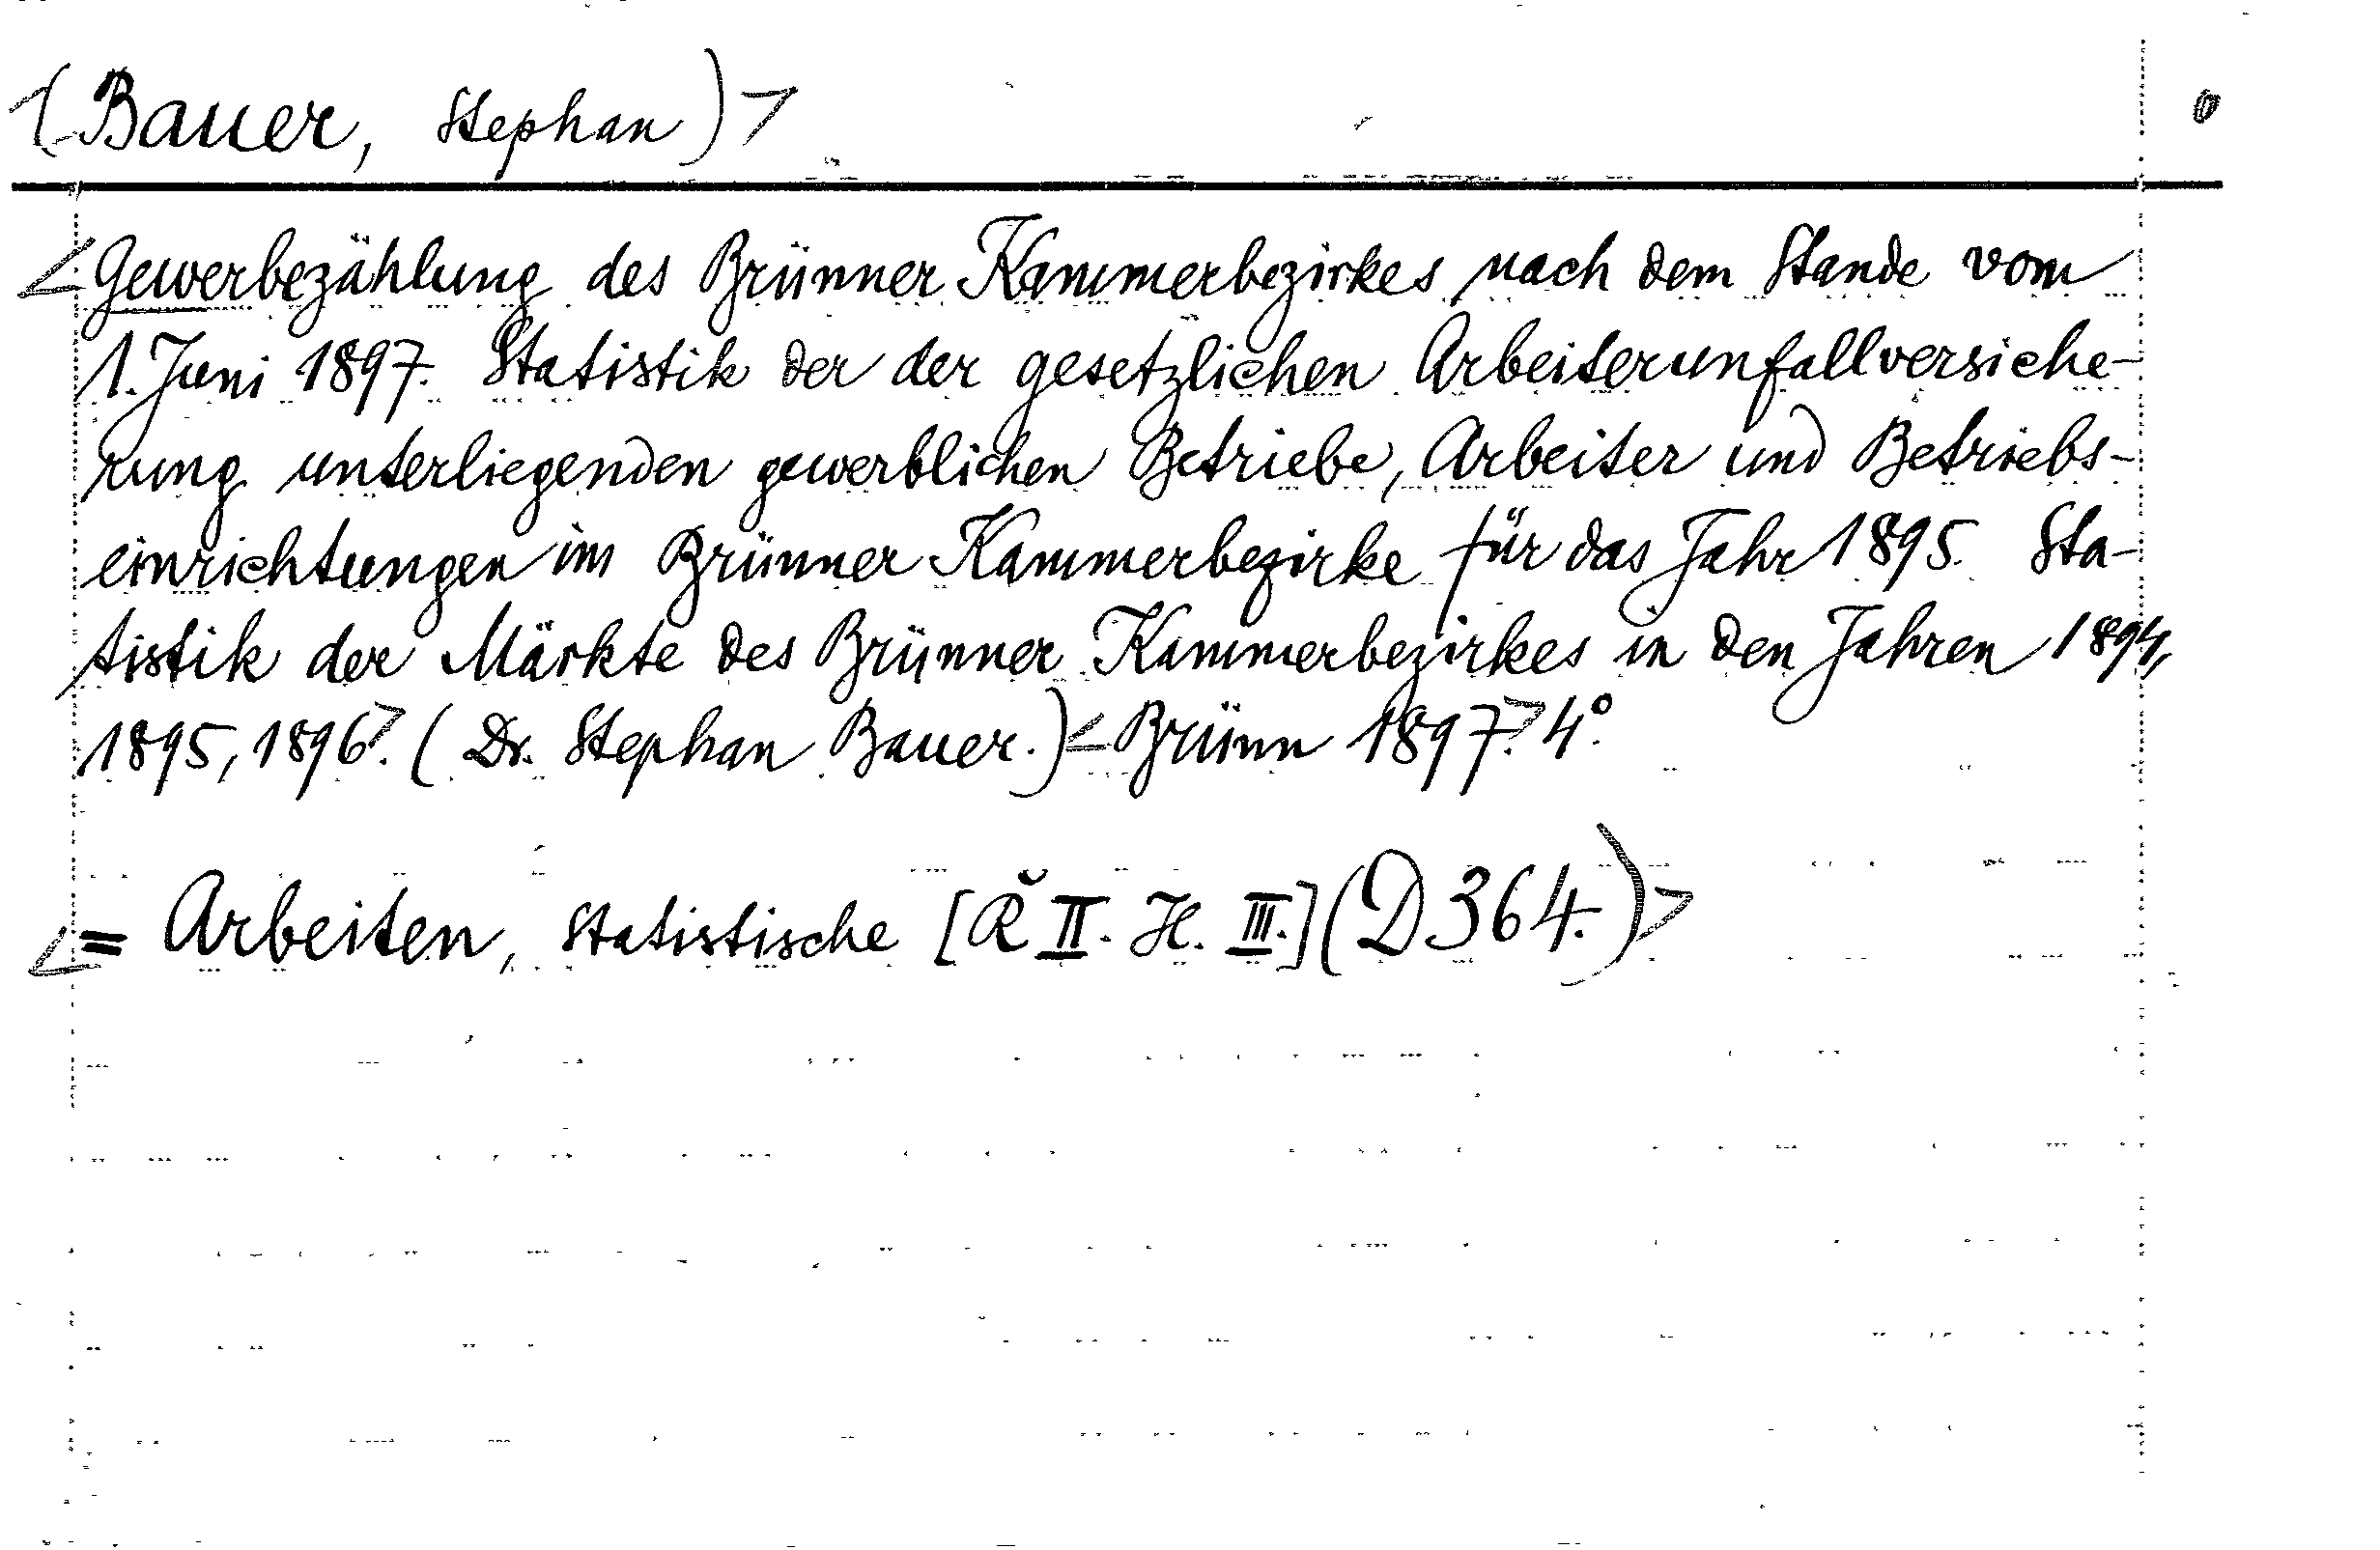 <(Bauer, Stephan)>
<Gewerbezählung des Brünner Kammerbezirkes nach dem Stande vom
1. Juni 1897. Statistik der der gesetzlichen Arbeiterunfallversiche-
rung unterliegenden gewerblichen Betriebe, Arbeiter und Betriebs-
einrichtungen im Brünner Kammerbezirke für das Jahr 1895. Sta-
tistik der Märkte des Brünner Kammerbezirkes in den Jahren 1894,
1895, 1896.> (Dr. Stephan Bauer.) <Brünn 1897.> 4°.
<= Arbeiten, statistische [Ř II. H. III.] (D 364.)>